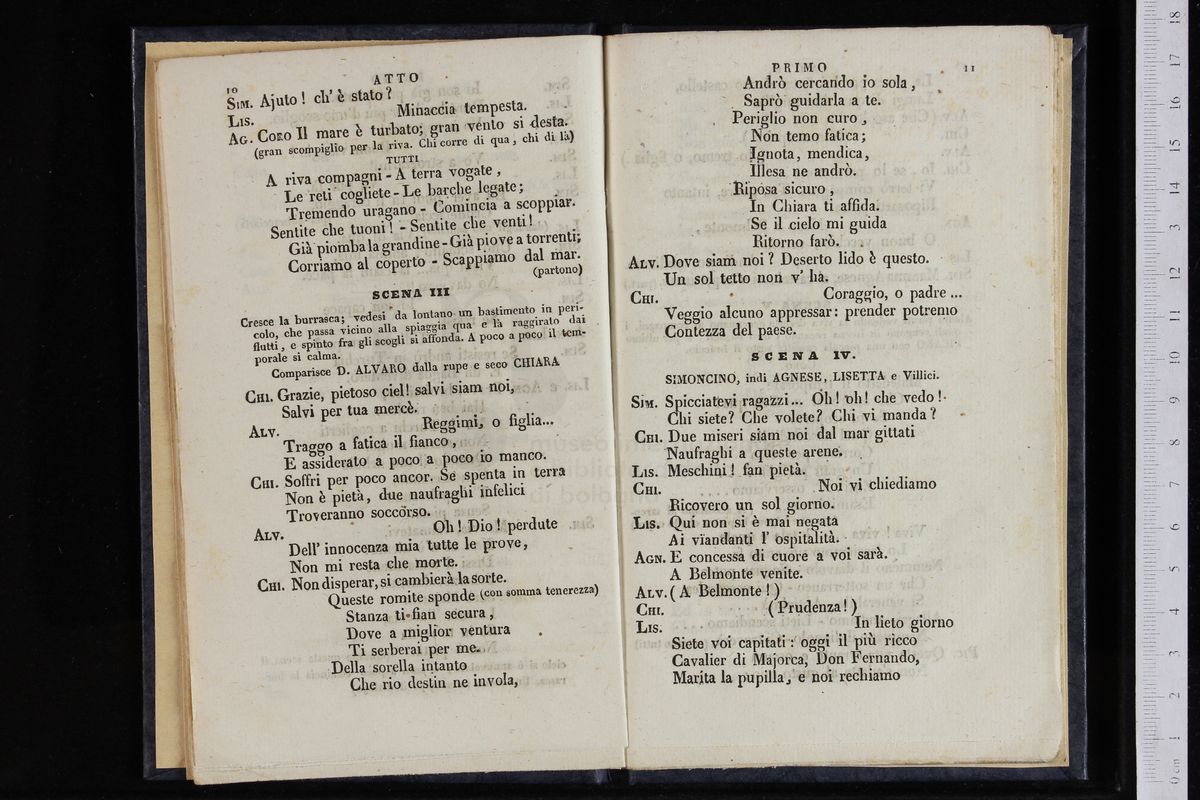 10
ATTO
SIM. Ajuto! ch' è stato?
LIS. Minaccia tempesta.
AG. CORO Il mare è turbato; gran vento si desta.
(gran scompiglio per la riva. Chi corre di qua, chi di là)
TUTTI
A riva compagni - A terra vogate,
Le reti cogliete - Le barche legate;
Tremendo uragano - Comincia a scoppiar.
Sentite che tuoni! - Sentite che venti!
Già piomba la grandine - Già piove a torrenti;
Corriamo al coperto - Scappiamo dal mar.
(partono)
SCENA III
Cresce la burrasca; vedesi da lontano un bastimento in peri-
colo, che passa vicino alla spiaggia qua e là raggirato dai
flutti, e spinto fra gli scogli si affonda. A poco a poco il tem-
porale si calma.
Comparisce D. ALVARO dalla rupe e seco CHIARA
CHI. Grazie, pietoso ciel! salvi siam noi,
Salvi per tua mercè.
ALV. Reggimi, o figlia...
Traggo a fatica il fianco,
E assiderato a poco a poco io manco.
CHI. Soffri per poco ancor. Se spenta in terra
Non è pietà, due naufraghi infelici
Troveranno soccorso.
ALV. Oh! Dio! perdute
Dell' innocenza mia tutte le prove,
Non mi resta che morte.
CHI. Non disperar, si cambierà la sorte.
Queste romite sponde (con somma tenerezza)
Stanza ti fian secura,
Dove a miglior ventura
Ti serberai per me.
Della sorella intanto
Che rio destin ne invola,
PRIMO
11
Andrò cercando io sola,
Saprò guidarla a te.
Periglio non curo,
Non temo fatica;
Ignota, mendica,
Illesa ne andrò.
Riposa sicuro,
In Chiara ti affida.
Se il cielo mi guida
Ritorno farò.
ALV. Dove siam noi? Deserto lido è questo.
Un sol tetto non v' ha.
CHI. Coraggio, o padre...
Veggio alcuno appressar: prender potremo
Contezza del paese.
SCENA IV.
SIMONCINO, indi AGNESE, LISETTA e Villici.
SIM. Spicciatevi ragazzi... Oh! oh! che vedo!
Chi siete? Che volete? Chi vi manda?
CHI. Due miseri siam noi dal mar gittati
Naufraghi a queste arene.
LIS. Meschini! fan pietà.
CHI. Noi vi chiediamo
Ricovero un sol giorno.
LIS. Qui non si è mai negata
Ai viandanti l' ospitalità.
AGN. E concessa di cuore a voi sarà.
A Belmonte venite.
ALV. (A Belmonte!)
CHI. (Prudenza!)
LIS. In lieto giorno
Siete voi capitati: oggi il più ricco
Cavalier di Majorca, Don Fernando,
Marita la pupilla, e noi rechiamo